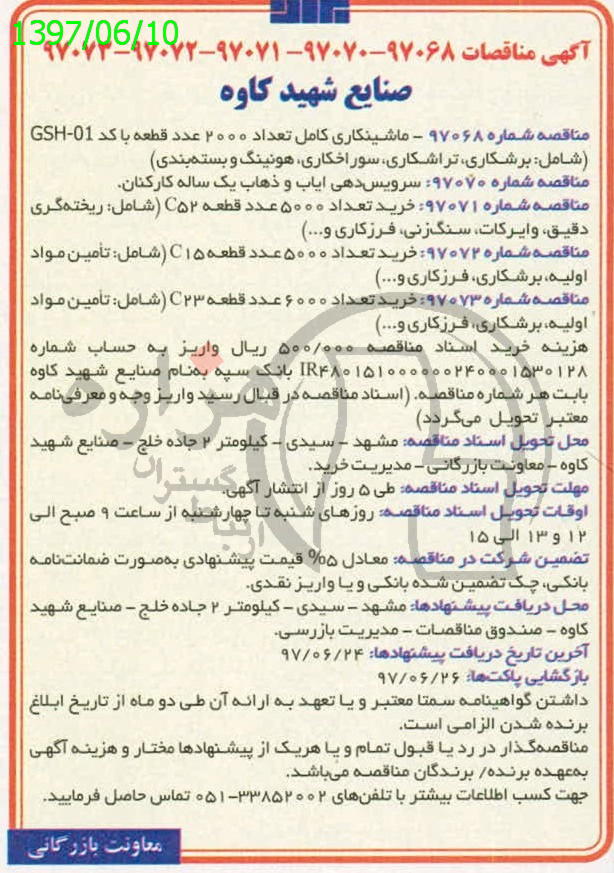 1397/06/10
آگهی مناقصات ۹۷۰۶۸-۹۷۰۷۰-۹۷۰۷۱-۹۷۰۷۲-۹۷۰۷۳
صنایع شهید کاوه
مناقصه شماره ۹۷۰۶۸ - ماشینکاری کامل تعداد ۲۰۰۰ عدد قطعه با کد GSH-01
(شامل: برشکاری، تراشکاری، سوراخکاری، هونینگ و بسته‌بندی)
مناقصه شماره ۹۷۰۷۰: سرویس‌دهی ایاب و ذهاب یک ساله کارکنان.
مناقصه شماره ۹۷۰۷۱: خرید تعداد ۵۰۰۰ عدد قطعه C۵۲ (شامل: ریخته‌گری
دقیق، وایرکات، سنگ‌زنی، فرزکاری و...)
مناقصه شماره ۹۷۰۷۲: خرید تعداد ۵۰۰۰ عدد قطعه C۱۵ (شامل: تأمین مواد
اولیه، برشکاری، فرزکاری و...)
مناقصه شماره ۹۷۰۷۳: خرید تعداد ۶۰۰۰ عدد قطعه C۲۳ (شامل: تأمین مواد
اولیه، برشکاری، فرزکاری و...)
هزینه خرید اسناد مناقصه ۵۰۰/۰۰۰ ریال واریز به حساب شماره
IR۴۸۰۱۵۱۰۰۰۰۰۰۰۲۴۰۰۰۱۵۳۰۱۲۸ بانک سپه به‌نام صنایع شهید کاوه
بابت هر شماره مناقصه. (اسناد مناقصه در قبال رسید واریز وجه و معرفی‌نامه
معتبر تحویل می‌گردد)
محل تحویل اسناد مناقصه: مشهد - سیدی - کیلومتر ۲ جاده خلج - صنایع شهید
کاوه - معاونت بازرگانی - مدیریت خرید.
مهلت تحویل اسناد مناقصه: طی ۵ روز از انتشار آگهی.
اوقات تحویل اسناد مناقصه: روزهای شنبه تا چهارشنبه از ساعت ۹ صبح الی
۱۲ و ۱۳ الی ۱۵
تضمین شرکت در مناقصه: معادل ۵% قیمت پیشنهادی به‌صورت ضمانت‌نامه
بانکی، چک تضمین شده بانکی و یا واریز نقدی.
محل دریافت پیشنهادها: مشهد - سیدی - کیلومتر ۲ جاده خلج - صنایع شهید
کاوه - صندوق مناقصات - مدیریت بازرسی.
آخرین تاریخ دریافت پیشنهادها: ۹۷/۰۶/۲۴
بازگشایی پاکت‌ها: ۹۷/۰۶/۲۶
داشتن گواهینامه سمتا معتبر و یا تعهد به ارائه آن طی دو ماه از تاریخ ابلاغ
برنده شدن الزامی است.
مناقصه‌گذار در رد یا قبول تمام و یا هریک از پیشنهادها مختار و هزینه آگهی
به‌عهده برنده/ برندگان مناقصه می‌باشد.
جهت کسب اطلاعات بیشتر با تلفن‌های ۳۳۸۵۲۰۰۲-۰۵۱ تماس حاصل فرمایید.
معاونت بازرگانی
هزاره